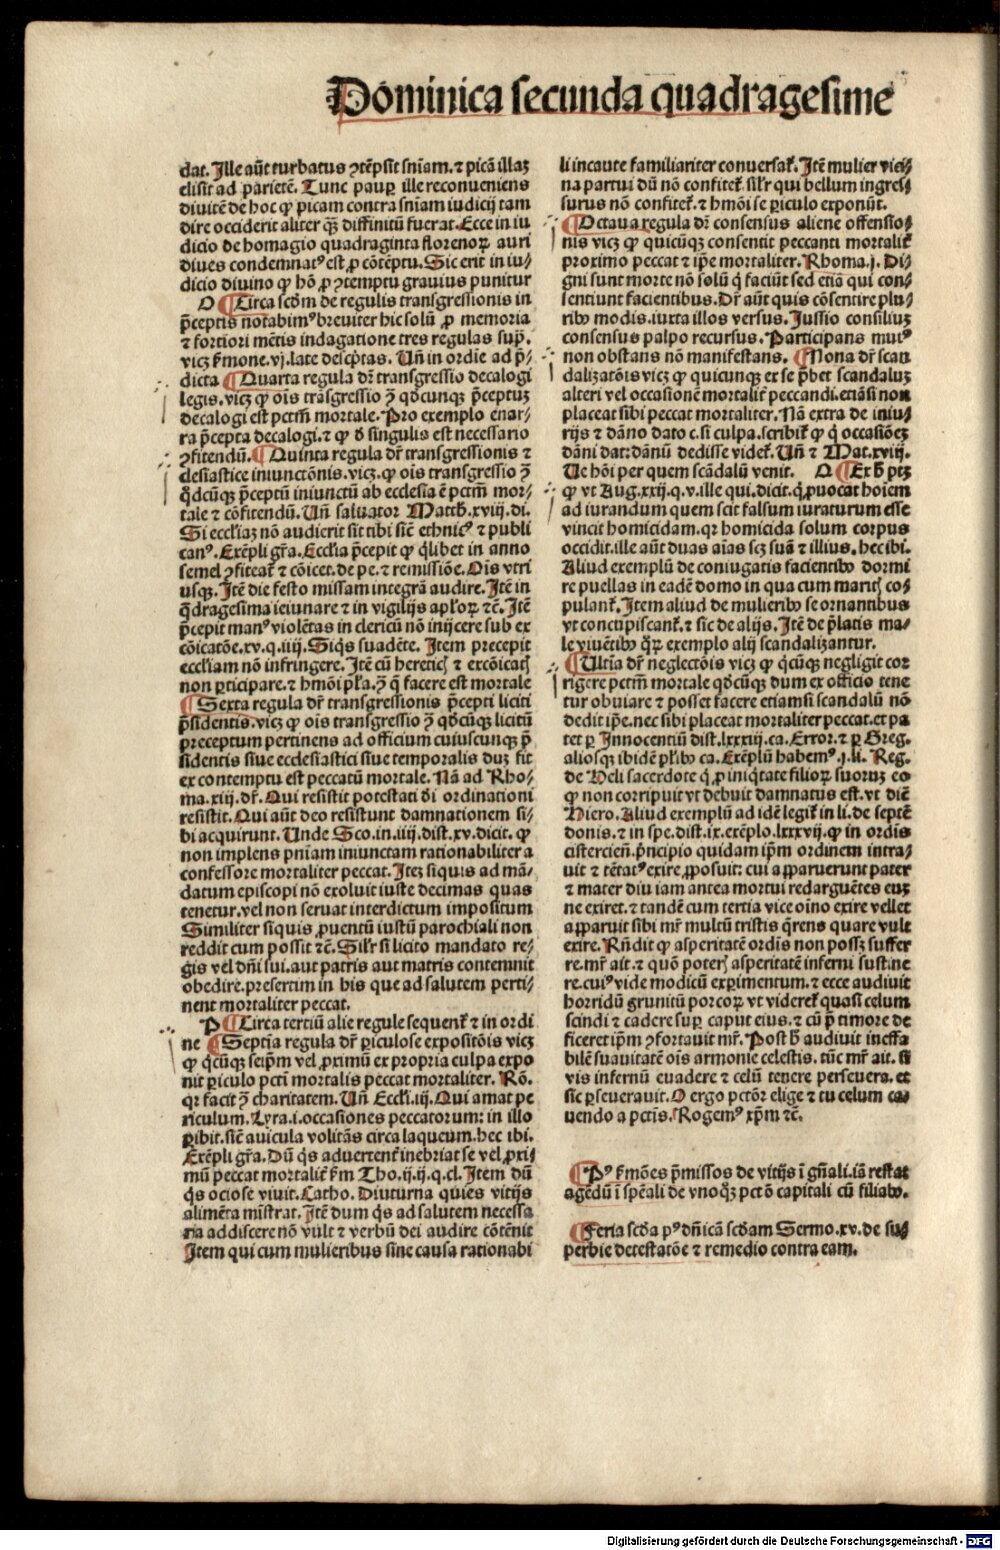 Dominica secunda quadragesime
dat. Ille aūt turbatus ꝯtēpsit sn̄iam. ⁊ picā illaꝫ
elisit ad parietē. Tunc pauꝑ ille reconueniens
diuitē de hoc ꝙ picam contra sn̄iam iudicij tam
dire occiderit aliter qꝫ̄ diffinitū fuerat. Ecce in iu
dicio de homagio quadraginta florenoꝝ auri
diues condemnatꝰ est ꝓ cōtēptu. Sic erit in iu⸗
dicio diuino ꝙ hō ꝓ ꝯtemptu grauius punitur
O ¶ Circa scd̄m de regulis transgressionis in
p̄ceptis notabimꝰ breuiter hic solū ꝓ memoria
⁊ fortiori mētis indagatione tres regulas sup̄.
vicꝫ ẜmone. vj. late desc̄ptas. Un̄ in ordīe ad p̄⸗
dicta ¶ Quarta regula dr̄ transgressio decalogi
legis. vicꝫ ꝙ oīs trāsgressio ꝯ̄ qd̄cunqꝫ p̄ceptuꝫ
decalogi est pctm̄ mortale. Pro exemplo enar⸗
ra p̄cepta decalogi. ⁊ ꝙ d̄ singulis est necessario
ꝯfitendū. ¶ Quinta regula dr̄ transgressionis ⁊
clesiastice iniunctōnis. vicꝫ. ꝙ oīs transgressio ꝯ̄
qd̄cūqꝫ p̄ceptū iniunctū ab ecclesia ē pctm̄ mor⸗
tale ⁊ cōfitendū. Un̄ saluator Matth. xviij. di.
Si eccliaꝫ nō audierit sit tibi sic̄ ethnicꝰ ⁊ publi
canꝰ. Exēpli gr̄a. Ecclīa p̄cepit ꝙ qͥlibet in anno
semel ꝯfiteat̄ ⁊ cōicet. de pe. ⁊ remissiōe. Oīs vtri
usqꝫ. Itē die festo missam integrā audire. Itē in
qͣdragesima ieiunare ⁊ in vigilijs apl̄oꝝ ⁊c̄. Itē
p̄cepit manꝰ violētas in clericū nō inijcere sub ex
cōicatōe. xv. q. iiij. Siqͥs suadēte. Item precepit
eccliam nō infringere. Itē cū hereticꝭ ⁊ excōicatꝭ
non ꝑticipare. ⁊ hm̄oi pl̄a. ꝯ̄ q̄ facere est mortale
¶ Sexta regula dr̄ transgressionis p̄cepti liciti
p̄sidentis. vicꝫ ꝙ oīs transgressio ꝯ̄ qd̄cūqꝫ licitū
preceptum pertinens ad officium cuiuscunqꝫ p̄
sidentis siue ecclesiastici siue temporalis duꝫ fit
ex contemptu est peccatū mortale. Nā ad Rho⸗
ma. xiij. dr̄. Qui resistit potestati d̄i ordinationi
resistit. Qui aūt deo resistunt damnationem si⸗
bi acquirunt. Unde Sco. in. iiij. dist. xv. dicit. ꝙ
non implens pn̄iam iniunctam rationabiliter a
confessore mortaliter peccat. Iteꝫ siquis ad mā⸗
datum episcopi nō exoluit iuste decimas quas
tenetur. vel non seruat interdictum impositum
Similiter siquis ꝓuentū iustū parochiali non
reddit cum possit ⁊c̄. Sil̄r si licito mandato re⸗
gis vel dn̄i sui. aut patris aut matris contemnit
obedire. presertim in his que ad salutem perti⸗
nent mortaliter peccat.
P ¶ Circa tertiū alie regule sequent̄ ⁊ in ordi
ne ¶ Septīa regula dr̄ ꝑiculose expositōis vicꝫ
ꝙ qͥcūqꝫ seip̄m vel ꝓximū ex propria culpa expo
nit ꝑiculo pcti mortalis peccat mortaliter. Rō.
qꝛ facit ꝯ̄ charitatem. Un̄ Eccli. iij. Qui amat pe
riculum. Lyra. i. occasiones peccatorum: in illo
ꝑibit. sic̄ auicula volitās circa laqueum. hec ibi.
Exēpli gr̄a. Dū qͥs aduertent̄ inebriat se vel ꝓxi⸗
mū peccat mortalit̄ ẜm Tho. ij. ij. q. cl. Item dū
qͥs ociose viuit. Catho. Diuturna quies vitijs
alimēta mīstrat. Itē dum qͥs ad salutem necessa
ria addiscere nō vult ⁊ verbū dei audire cōtēnit
Item qui cum mulieribus sine causa rationabi
li incaute familiariter conuersat̄. Itē mulier vici⸗
na partui dū nō confitet̄. sil̄r qui bellum ingres⸗
surus nō confitet̄. ⁊ hm̄oi se ꝑiculo exponūt.
¶ Octaua regula dr̄ consensus aliene offensio⸗
nis vicꝫ ꝙ quicūqꝫ consentit peccanti mortalit̄
proximo peccat ⁊ ip̄e mortaliter. Rhoma. j. Di⸗
gni sunt morte nō solū q̄ faciūt sed etiā qui con⸗
sentiunt facientibus. Dr̄ aūt quis cōsentire plu⸗
ribꝰ modis. iuxta illos versus. Iussio consiliuꝫ
consensus palpo recursus. Participans mutꝰ
non obstans nō manifestans. ¶ Nona dr̄ scan
dalizatōis vicꝫ ꝙ quicunqꝫ ex se p̄bet scandaluꝫ
alteri vel occasionē mortalit̄ peccandi. etiāsi non
placeat sibi peccat mortaliter. Nā extra de iniu⸗
rijs ⁊ dāno dato c. si culpa. scribit̄ ꝙ qͥ occasiōeꝫ
dāni dat: dānū dedisse videt̄. Un̄ ⁊ Mat. xviij.
Ue hōi per quem scādalū venit. Q ¶ Et h̄ ptꝫ
ꝙ vt Aug. xxij. q. v. ille qui. dicit. qͥ ꝓuocat hoīem
ad iurandum quem scit falsum iuraturum esse
vincit homicidam. qꝛ homicida solum corpus
occidit. ille aūt duas aīas scꝫ suā ⁊ illius. hec ibi.
Aliud exemplū de coniugatis facientibꝰ dormi
re puellas in eadē domo in qua cum maritꝭ co⸗
pulant̄. Item aliud de mulieribꝰ se ornantibus
vt concupiscant̄. ⁊ sic de alijs. Itē de p̄latis ma⸗
le viuētibꝰ qͦꝝ exemplo alij scandalizantur.
¶ Ultīa dr̄ neglectōis vicꝫ ꝙ qͥcūqꝫ negligit cor
rigere pctm̄ mortale qd̄cūqꝫ dum ex officio tene
tur obuiare ⁊ posset facere etiamsi scandalū nō
dedit ip̄e. nec sibi placeat mortaliter peccat. et pa
tet ꝑ Innocentiū dist. lxxxiij. ca. Error. ⁊ ꝑ Greg.
aliosqꝫ ibidē pl̄ibꝰ ca. Exēplū habemꝰ. j. li. Reg.
de Heli sacerdote qͥ ꝓ iniqͥtate filioꝝ suoruꝫ eo
ꝙ non corripuit vt debuit damnatus est. vt dic̄
Hiero. Aliud exemplū ad idē legit̄ in li. de septē
donis. ⁊ in spe. dist. ix. exēplo. lxxxvij. ꝙ in ordīs
cistercien̄. p̄ncipio quidam ip̄m ordinem intra⸗
uit ⁊ tētatꝰ exire ꝓposuit: cui apparuerunt pater
⁊ mater diu iam antea mortui redarguētes euꝫ
ne exiret. ⁊ tandē cum tertia vice oīno exire vellet
apparuit sibi mr̄ multū tristis q̄rens quare vult
exire. Rn̄dit ꝙ asperitatē ordīs non possꝫ suffer
re. mr̄ ait. ⁊ quō poterꝭ asperitatē inferni sustine
re. cuiꝰ vide modicū exꝑimentum. ⁊ ecce audiuit
horridū grunitū porcoꝝ vt videret̄ quasi celum
scindi ⁊ cadere suꝑ caput eius. ⁊ cū p̄ timore de
ficeret ip̄m ꝯfortauit mr̄. Post h̄ audiuit ineffa
bilē suauitatē oīs armonie celestis. tūc mr̄ ait. si
vis infernū euadere ⁊ celū tenere perseuera. et
sic ꝑseuerauit. O ergo pctōr elige ⁊ tu celum ca⸗
uendo a pctīs. Rogemꝰ xp̄m ⁊c̄.
¶ Pꝰ ẜmōes p̄missos de vitijs ī gn̄ali. iā restat
agēdū ī spēali de vnoqͦqꝫ pctō capitali cū filiabꝰ.
¶ Feria scd̄a pꝰ dn̄icā scd̄am Sermo. xv. de su⸗
perbie detestatōe ⁊ remedio contra eam.
Digitalisierung gefördert durch die Deutsche Forschungsgemeinschaft - DFG